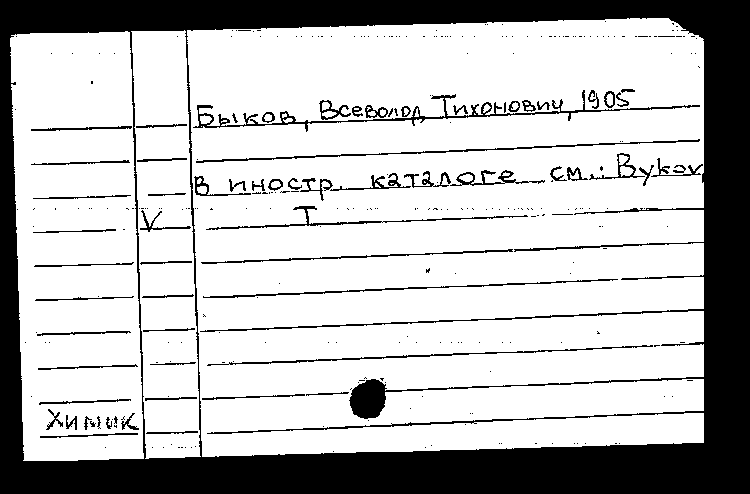 Быков, Всеволод Тихонович, 1905
В иностр. каталоге см.: Bykov,
V T
Химик